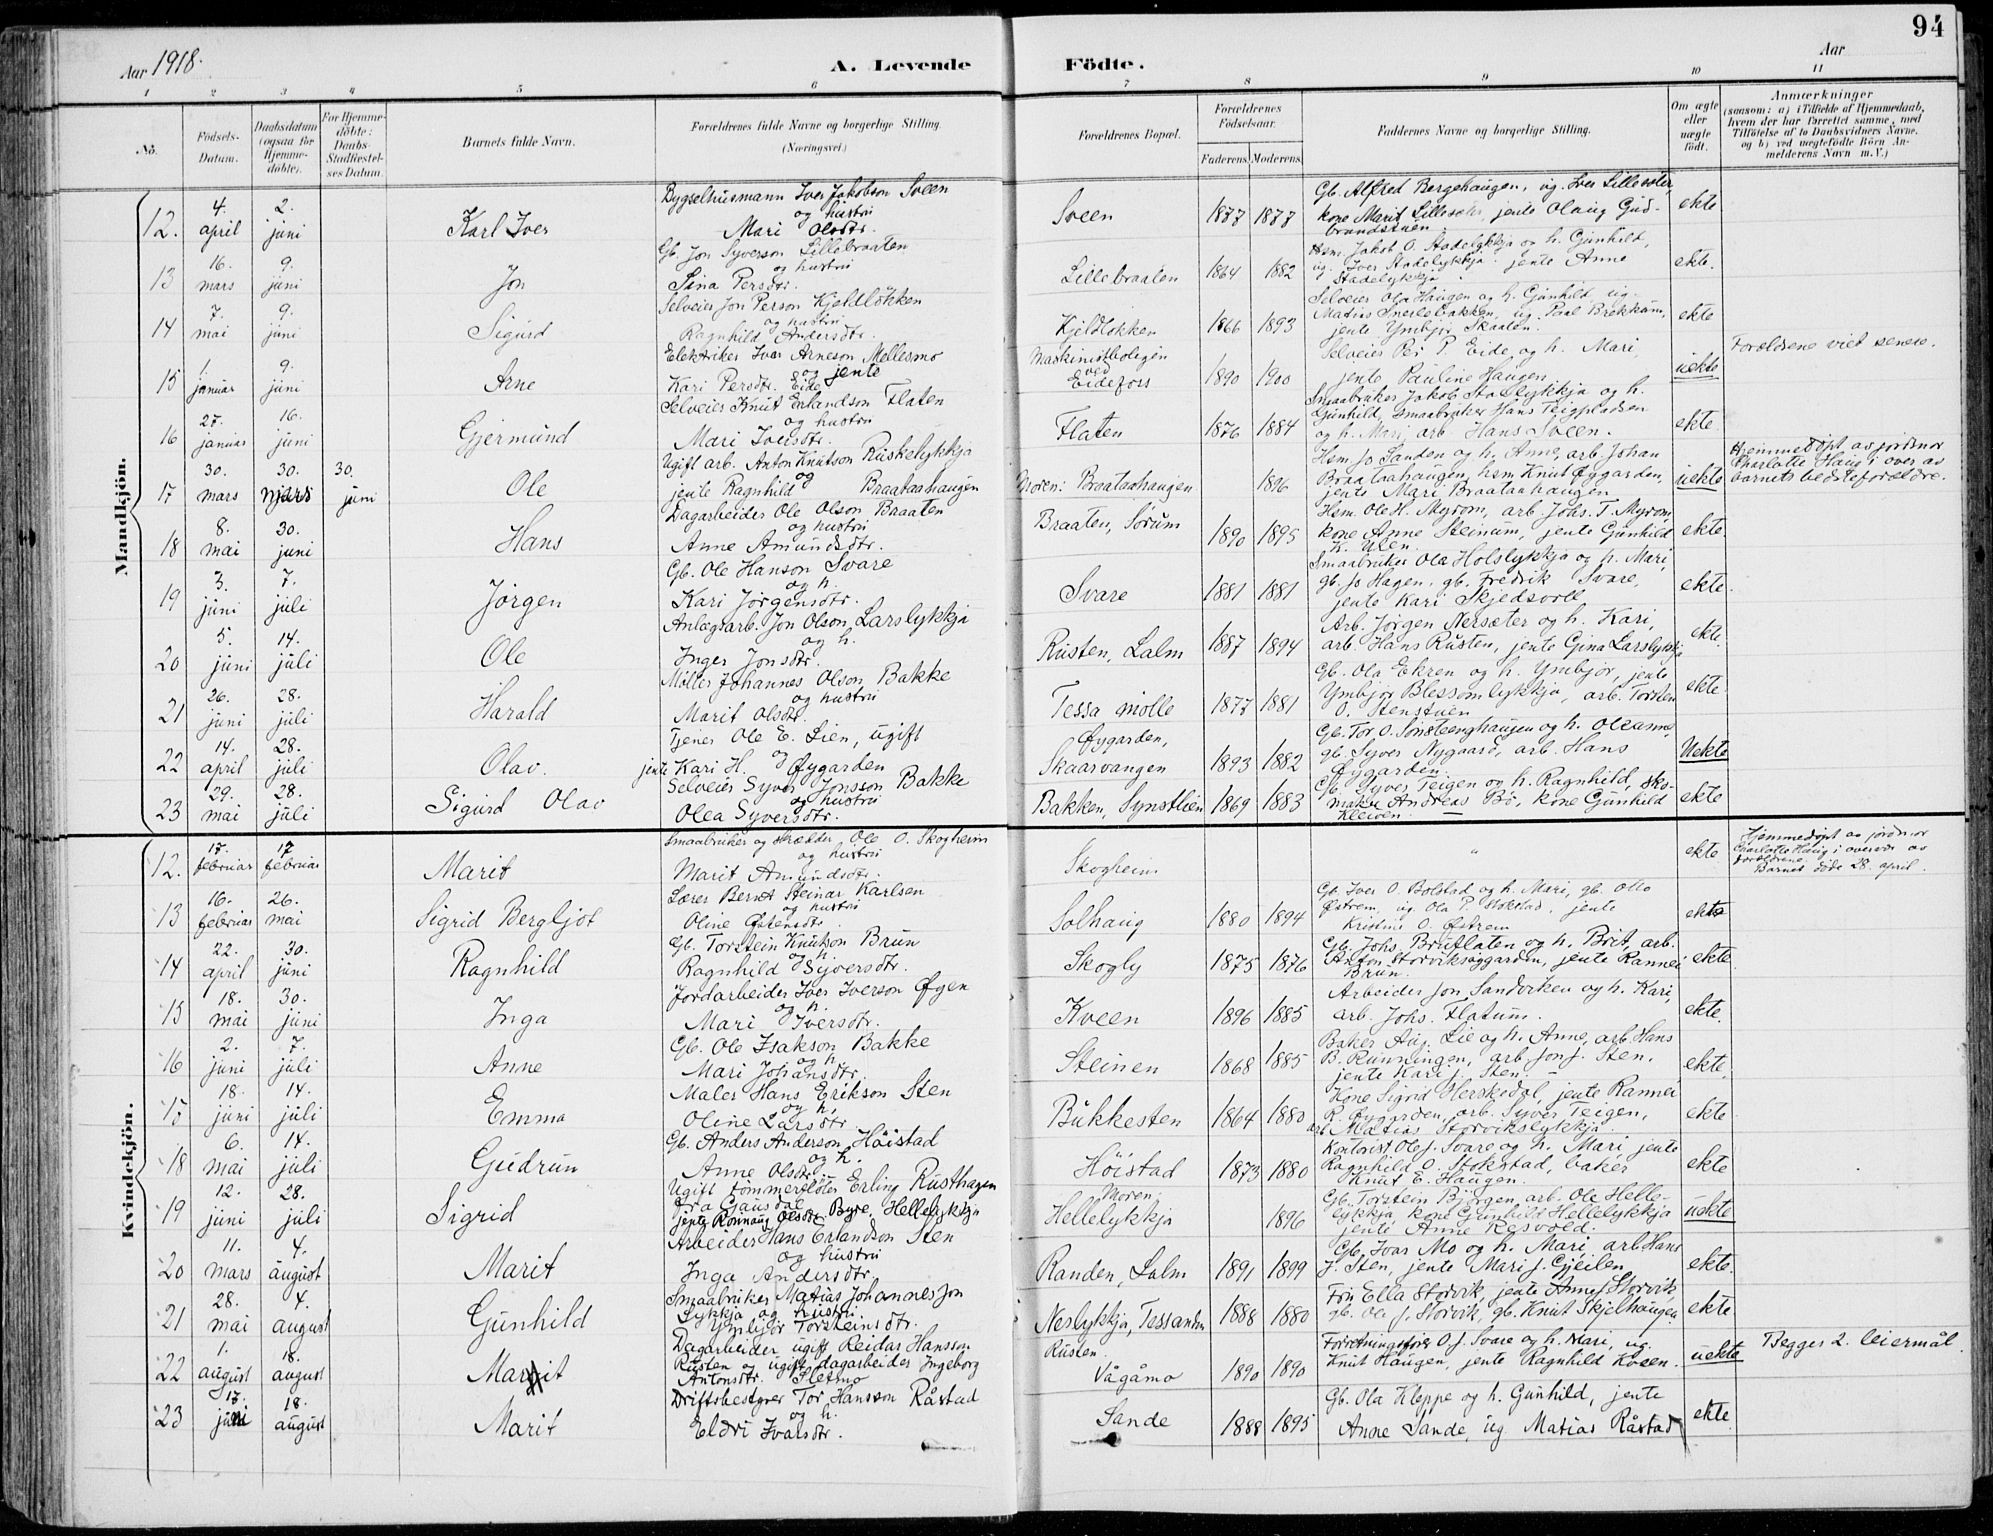 94
Aar 1918.
A. Levende Födte.
Aar
1 2 3 4 5 6 7 8 9 10 11
No.
Födsels-Datum.
Daabsdatum (ogsaa for Hjemme-döbte).
For Hjemme-döbte: Daabs-Stadfæstel-ses Datum.
Barnets fulde Navn.
Forældrenes fulde Navne og borgerlige Stilling. (Næringsvei.)
Forældrenes Bopæl.
Forældrenes Födselsaar.
Faderens. Moderens.
Faddernes Navne og borgerlige Stilling.
Om ægte eller uægte födt.
Anmærkninger
(saasom: a) i Tilfælde af Hjemmedaab, hvem der har forrettet samme, med Tilföielse af to Daabsvidners Navne, og b) ved uægtefödte Börn An-melderens Navn m.V.)
Mandkjön.
12. 4. april 2. juni Karl Iver
Bygselhusmann Iver Jakobson Sveen og hustru Mari Olsdtr.
Sveen 1877 1877
Gb. Alfred Bergehaugen, ug. Iver Lillesæter, kone Marit Lillesæter, jente Olaug Gud-brandstuen.
ekte
13 16. mars 9. juni Jon
Gb. Jon Syverson Lillebraaten og hustru Sina Persdtr.
Lillebraaten 1864 1882
Hsm. Jakob O. Stadelykkja og h. Gunhild, ug. Iver Stadelykkja. jente Anne Stadelykkja
ekte.
14 7. mai 9. juni Sigurd
Selveier Jon Person Kjeldlökken og hustru Ragnhild Andersdtr.
Kjeldlokken 1866 1893
Selveier Ola Haugen og h. Gunhild, ug. Matias Snerlebakken, ug. Paal Brekkum, jente Ymbjör Skaaten.
ekte
15 1. januar 9. juni Arne
Elektriker Ivar Arneson Mellesmo og jente Kari Persdtr. Eide
Maskinistboligen ved Eidefoss 1890 1900
Selveier Per P. Eide og h. Mari, jente Pauline Haugen.
uekte
Forældrene viet senere.
16 27. januar 16. juni Gjermund
Selveier Knut Erlandson Flaten og hustru Mari Iversdtr.
Flaten 1876 1884
Smaabruker Jakob Stadelykkja og h. Gunhild, smaabruker Hans Teigpladsen og h. Mari, arb. Hans Sveen.
ekte
17 30. mars 30. mars 30. juni Ole
Ugift arb. Anton Knutson Ruskelykkja og jente Ragnhild Braataahaugen
Moren: Braataahaugen 1896
Hsm. Jo Sanden og h. Anne, arb. Johan Braataahaugen, hsm. Knut Øygarden, jente Mari Braataahaugen
uekte
Hjemmedöpt av jordmor Charlotte Haug i overv. av barnets bedsteforældre.
18 8. mai 30. juni Hans
Dagarbeider Ole Olson Braaten og hustru Anne Amundsdtr.
Braaten, Sörum 1890 1895
Hsm. Ole H. Myrom, arb. Johs. T. Myrom, kone Anne Steinum, jente Gunhild K. Ulen.
ekte.
19 3. juni 7. juli Jörgen
Gb. Ole Hanson Svare og h. Kari Jörgensdtr.
Svare 1881 1881
Smaabruker Ola Holslykkja og h. Mari, gb. Jo Hagen, gb. Fredrik Svare, jente Kari Skjedsvoll
ekte.
20 5. juni 14. juli Ole
Anlægsarb. Jon Olson Larslykkja og h. Inger Jonsdtr.
Rusten, Lalm 1887 1894
Arb. Jörgen Nersæter og h. Kari, arb. Hans Rusten, jente Gina Larslykkja
ekte.
21 26. juni 28. juli Harald
Möller Johannes Olson Bakke og hustru Marit Olsdtr.
Tessa mölle 1877 1881
Gb. Ola Ekren og h. Ymbjör, jente Ymbjör Blessomlykkja, arb. Torsten O. Stenstuen
ekte.
22 14. april 28. juli Olav.
Tjener Ole E. Lien, ugift og jente Kari H. Øygarden
Øygarden, Skaarvangen 1893 1882
Gb. Tor O. Sönsteenghaugen og h. Oleanna, gb. Syver Nygaard, arb. Hans Øygarden.
Uekte
23 29. mai 28. juli Sigurd Olav
Selveier Syver Jonsson Bakke og hustru Olea Syversdtr.
Bakken, Synstlien 1869 1883
Gb. Syver Teigen og h. Ragnhild, sko-maker Andreas Bö, kone Gunhild Kleiven.
ekte
Kvindekjön.
12. 17. februar 17 februar Marit
Smaabruker og skrædder Ole O. Skogheim og hustru Marit Amundsdtr.
Skogheim
"
ekte
Hjemmedöpt av jordmor Charlotte Haug i overvær av forældrene. Barnet döde 28. april.
13 16. februar 26. mai Sigrid Bergljot
Lærer Bernt Steinar Karlsen og hustru Oline Østensdtr.
Solhaug 1880 1894
Gb. Iver O. Bolstad og h. Mari, gb. Otto Østrem, ug. Ola P. Stokstad, jente Kristine O. Østrem
ekte
14 22. april 30. juni Ragnhild
Gb. Torstein Knutson Brun og h. Ragnhild Syversdtr.
Skogly 1875 1876
Gb. Johs. Bruflaten og h. Brit, arb. Anton Storviksøygarden, jente Rannei Brun.
ekte.
15 18. mai 30. juni Inga
Jordarbeider Iver Iverson Øyen og h. Mari Iversdtr.
Kveen 1896 1885
Arbeider Jon Sandviken og h. Kari, arb. Johs. Flatum.
ekte.
16 2. juni 7. juli Anne
Gb. Ole Isakson Bakke og h. Mari Johansdtr.
Steinen 1868 1885
Baker Aug. Lie og h. Anne, arb. Hans B. Runningen, arb. Jon J. Sten, jente Kari J. Sten.
ekte.
17 18. juni 14. juli Emma
Maler Hans Erikson Sten og h. Oline Larsdtr
Bukkesten 1864 1880
Kone Sigrid Herskedal, jente Rannei R. Øygarden, arb. Syver Teigen, arb. Matias Storvikslykkja.
ekte
18 6. mai 14. juli Gudrun
Gb. Anders Anderson Höistad og h. Anne Olsdtr.
Höistad 1873 1880
Kontorist Ole J. Svare og h. Mari, jente Ragnhild O. Stokstad, baker Knut E. Haugen.
ekte
19 12. juni 28. juli Sigrid
Ugift tömmerflöter Erling Rusthagen fra Gausdal og jente Rönnaug Olsdtr. Byre, Hellelykkja
Moren: Hellelykkja 1896
Gb. Torstein Bjørgen, arb. Ole Helle-lykkja, kone Gunhild Hellelykkja jente Anne Resvold.
uekte
20 11. mars 4. august Marit
Arbeider Hans Erlandson Sten og hustru Inga Andersdtr.
Randen, Lalm 1891 1899
Gb. Ivar Mo og h. Mari, arb. Hans J. Sten, jente Mari J. Gjeilen
ekte.
21 28. mai 4. august Gunhild
Smaabruker Matias Johannesson Lykkja og hustru Ymbjör Torsteinsdtr.
Neslykkja, Tessanden 1888 1880
Fru Ella Storvik, jente Anne J Storvik, gb. Ole J. Storvik, gb. Knut Skjelhaugen
ekte.
22 1. august 18. august Marit
Dagarbeider ugift Reidar Hansson Rusten og ugift dagarbeider Ingeborg Antonsdtr. Sletmo
Rusten. Vågåmo 1890 1890
Forretningsförer O. J. Svare og h. Mari, ug. Knut Haugen, jente Ragnhild Kveen.
uekte
Begges 2. leiermål.
23 17. juni 18. august Marit
Driftsbestyrer Tor Hansson Råstad og h. Eldri Ivarsdtr.
Sande 1888 1895
Gb. Ola Kleppe og h. Gunhild, jente Anne Sande, ug. Matias Råstad
ekte.